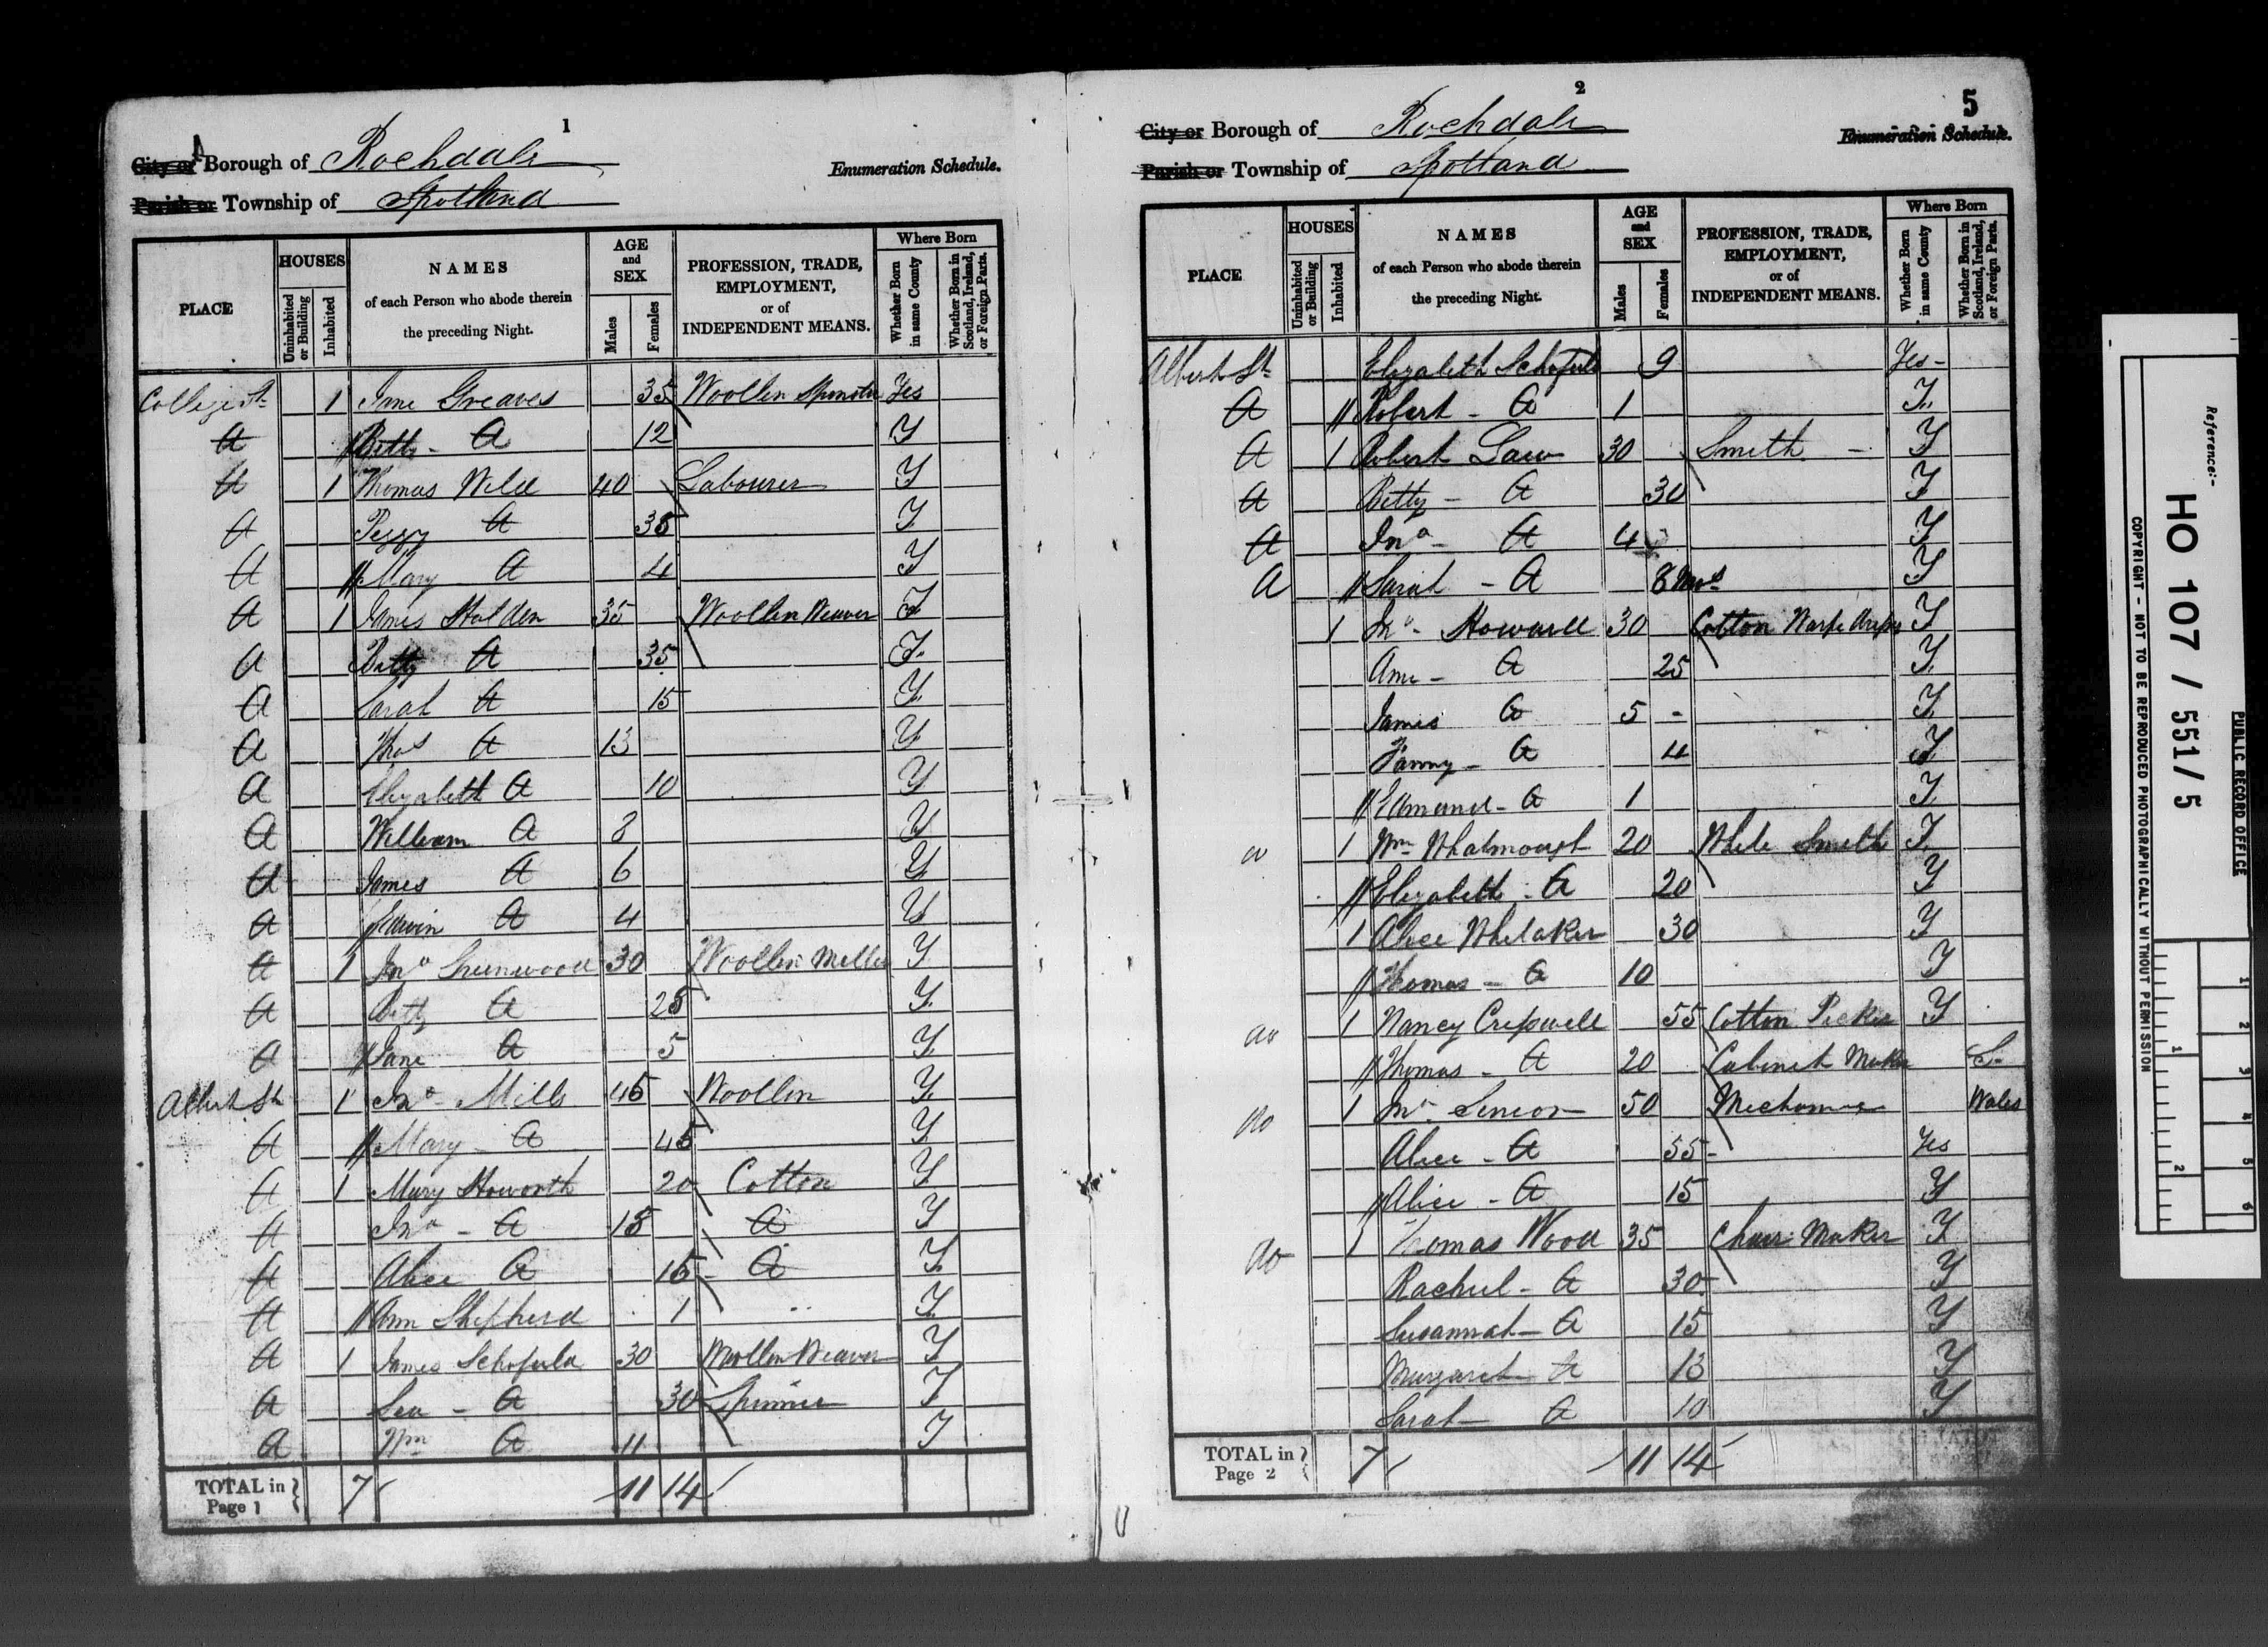 1
City or Borough of Rochdale
Enumeration Schedule.
Parish or Township of Spotland
PLACE
HOUSES
Uninhabited or Building
Inhabited
NAMES
of each Person who abode therein
the preceding Night.
AGE
and
SEX
Males
Females
PROFESSION, TRADE,
EMPLOYMENT,
or of
INDEPENDENT MEANS.
Where Born
Whether Born in same County
Whether Born in Scotland, Ireland, or Foreign Parts.
College St 1 Jane Greaves 35 Woollen Yes
do Betty do 12 Y
do 1 Thomas Wild 40 Labourer Y
do Peggy do 35 Y
do Mary do 4 Y
do 1 James Holden 35 Woollen Weaver Y
do Betty do 35 Y
do Sarah do 15 Y
do Thos do 13 Y
do Elizabeth do 10 Y
do William do 8 Y
do James do 6 Y
do Edwin do 4 Y
do 1 Jno Greenwood 30 Woollen Miller Y
do Betty do 25 Y
do Jane do 5 Y
Albert St 1 Jno Mills 45 Woollen Y
do Mary do 45 Y
do 1 Mary Howorth 20 Cotton Y
do Jno do 15 do Y
do Alice do 15 do Y
do Ann Shepherd 1 Y
do 1 James Schofield 30 Woollen Weaver Y
do do 30 Spinner Y
do Wm do 11 Y
TOTAL in Page 1 7 11 14
2
5
City or Borough of Rochdale
Enumeration Schedule.
Parish or Township of Spotland
PLACE
HOUSES
Uninhabited or Building
Inhabited
NAMES
of each Person who abode therein
the preceding Night.
AGE
and
SEX
Males
Females
PROFESSION, TRADE,
EMPLOYMENT,
or of
INDEPENDENT MEANS.
Where Born
Whether Born in same County
Whether Born in Scotland, Ireland, or Foreign Parts.
Albert St Elizabeth Schofield 9 Yes
do Robert do 1 Y
do 1 Robert Law 30 Smith Y
do Betty do 30 Y
do Jno do 4 Y
do Sarah do 8 Mos Y
1 Jno Howard 30 Cotton Warp Y
Ann do 25 Y
James do 5 Y
Fanny do 4 Y
Edmund do 1 Y
do 1 Wm Whatmough 20 White Smith Y
Elizabeth do 20 Y
1 Alice Whitaker 30 Y
Thomas do 10 Y
do 1 Nancy Creswell 55 Cotton Picker Y
Thomas do 20 Cabinet Maker
do 1 Jno Senior 50 Mechanic Wales
Alice do 55 Yes
Alice do 15 Y
do 1 Thomas Wood 35 Chair Maker Y
Rachel do 30 Y
Susannah do 15 Y
Margaret do 13 Y
Sarah do 10 Y
TOTAL in Page 2 7 11 14
PUBLIC RECORD OFFICE
Reference:-
HO 107 / 551/5
COPYRIGHT - NOT TO BE REPRODUCED PHOTOGRAPHICALLY WITHOUT PERMISSION
1 2 3 4 5 6
1 2